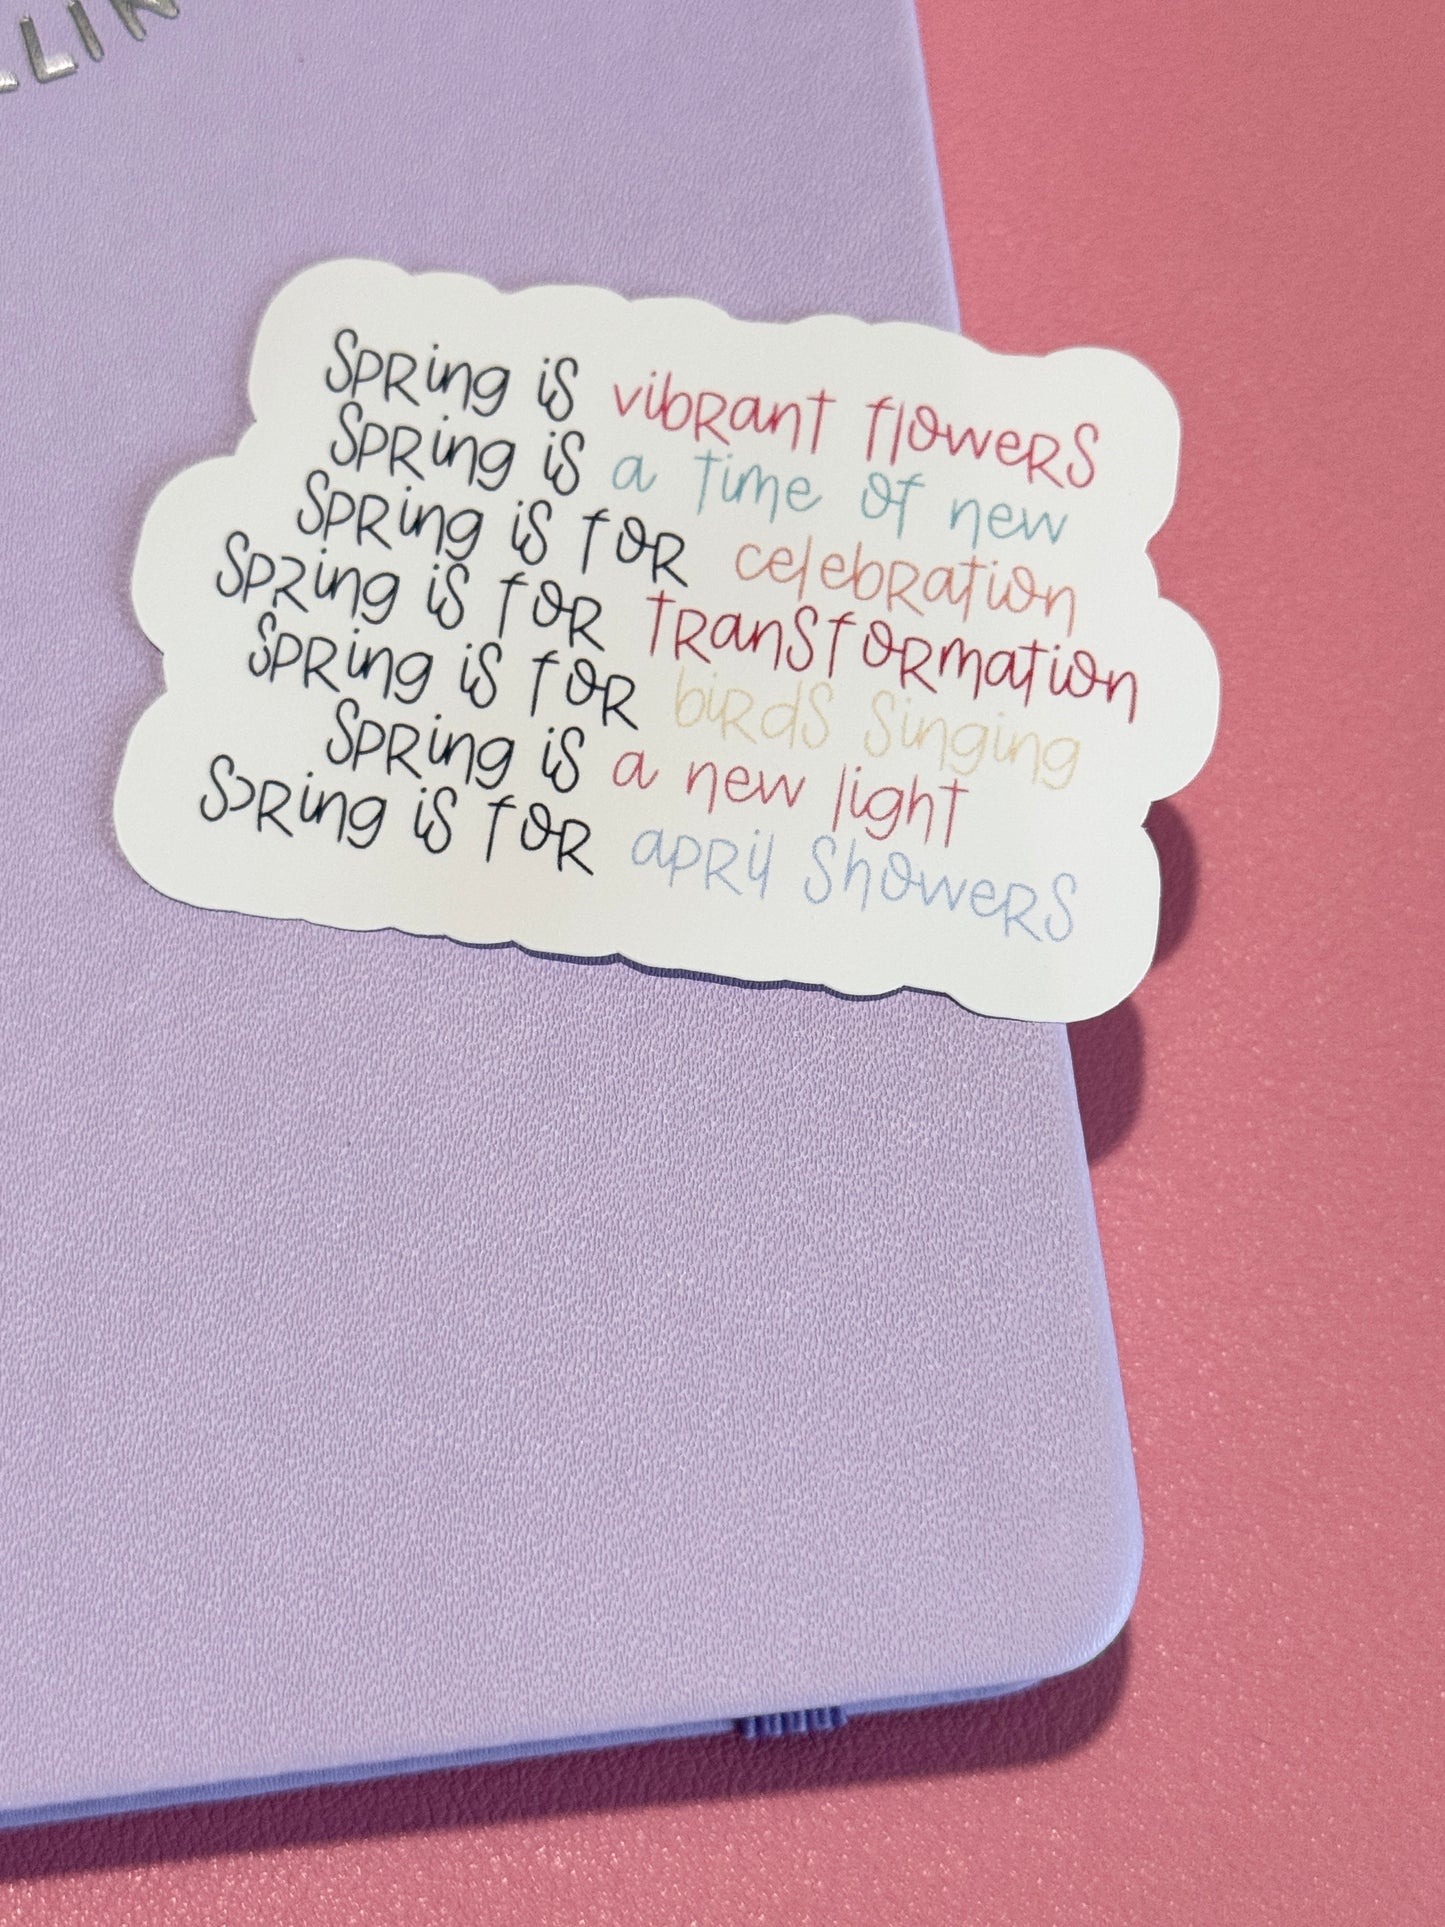 LLIN
Spring is vibrant flowers
Spring is a time of new
Spring is for celebration
Spring is for transformation
Spring is for birds singing
Spring is a new light
Spring is for april showers